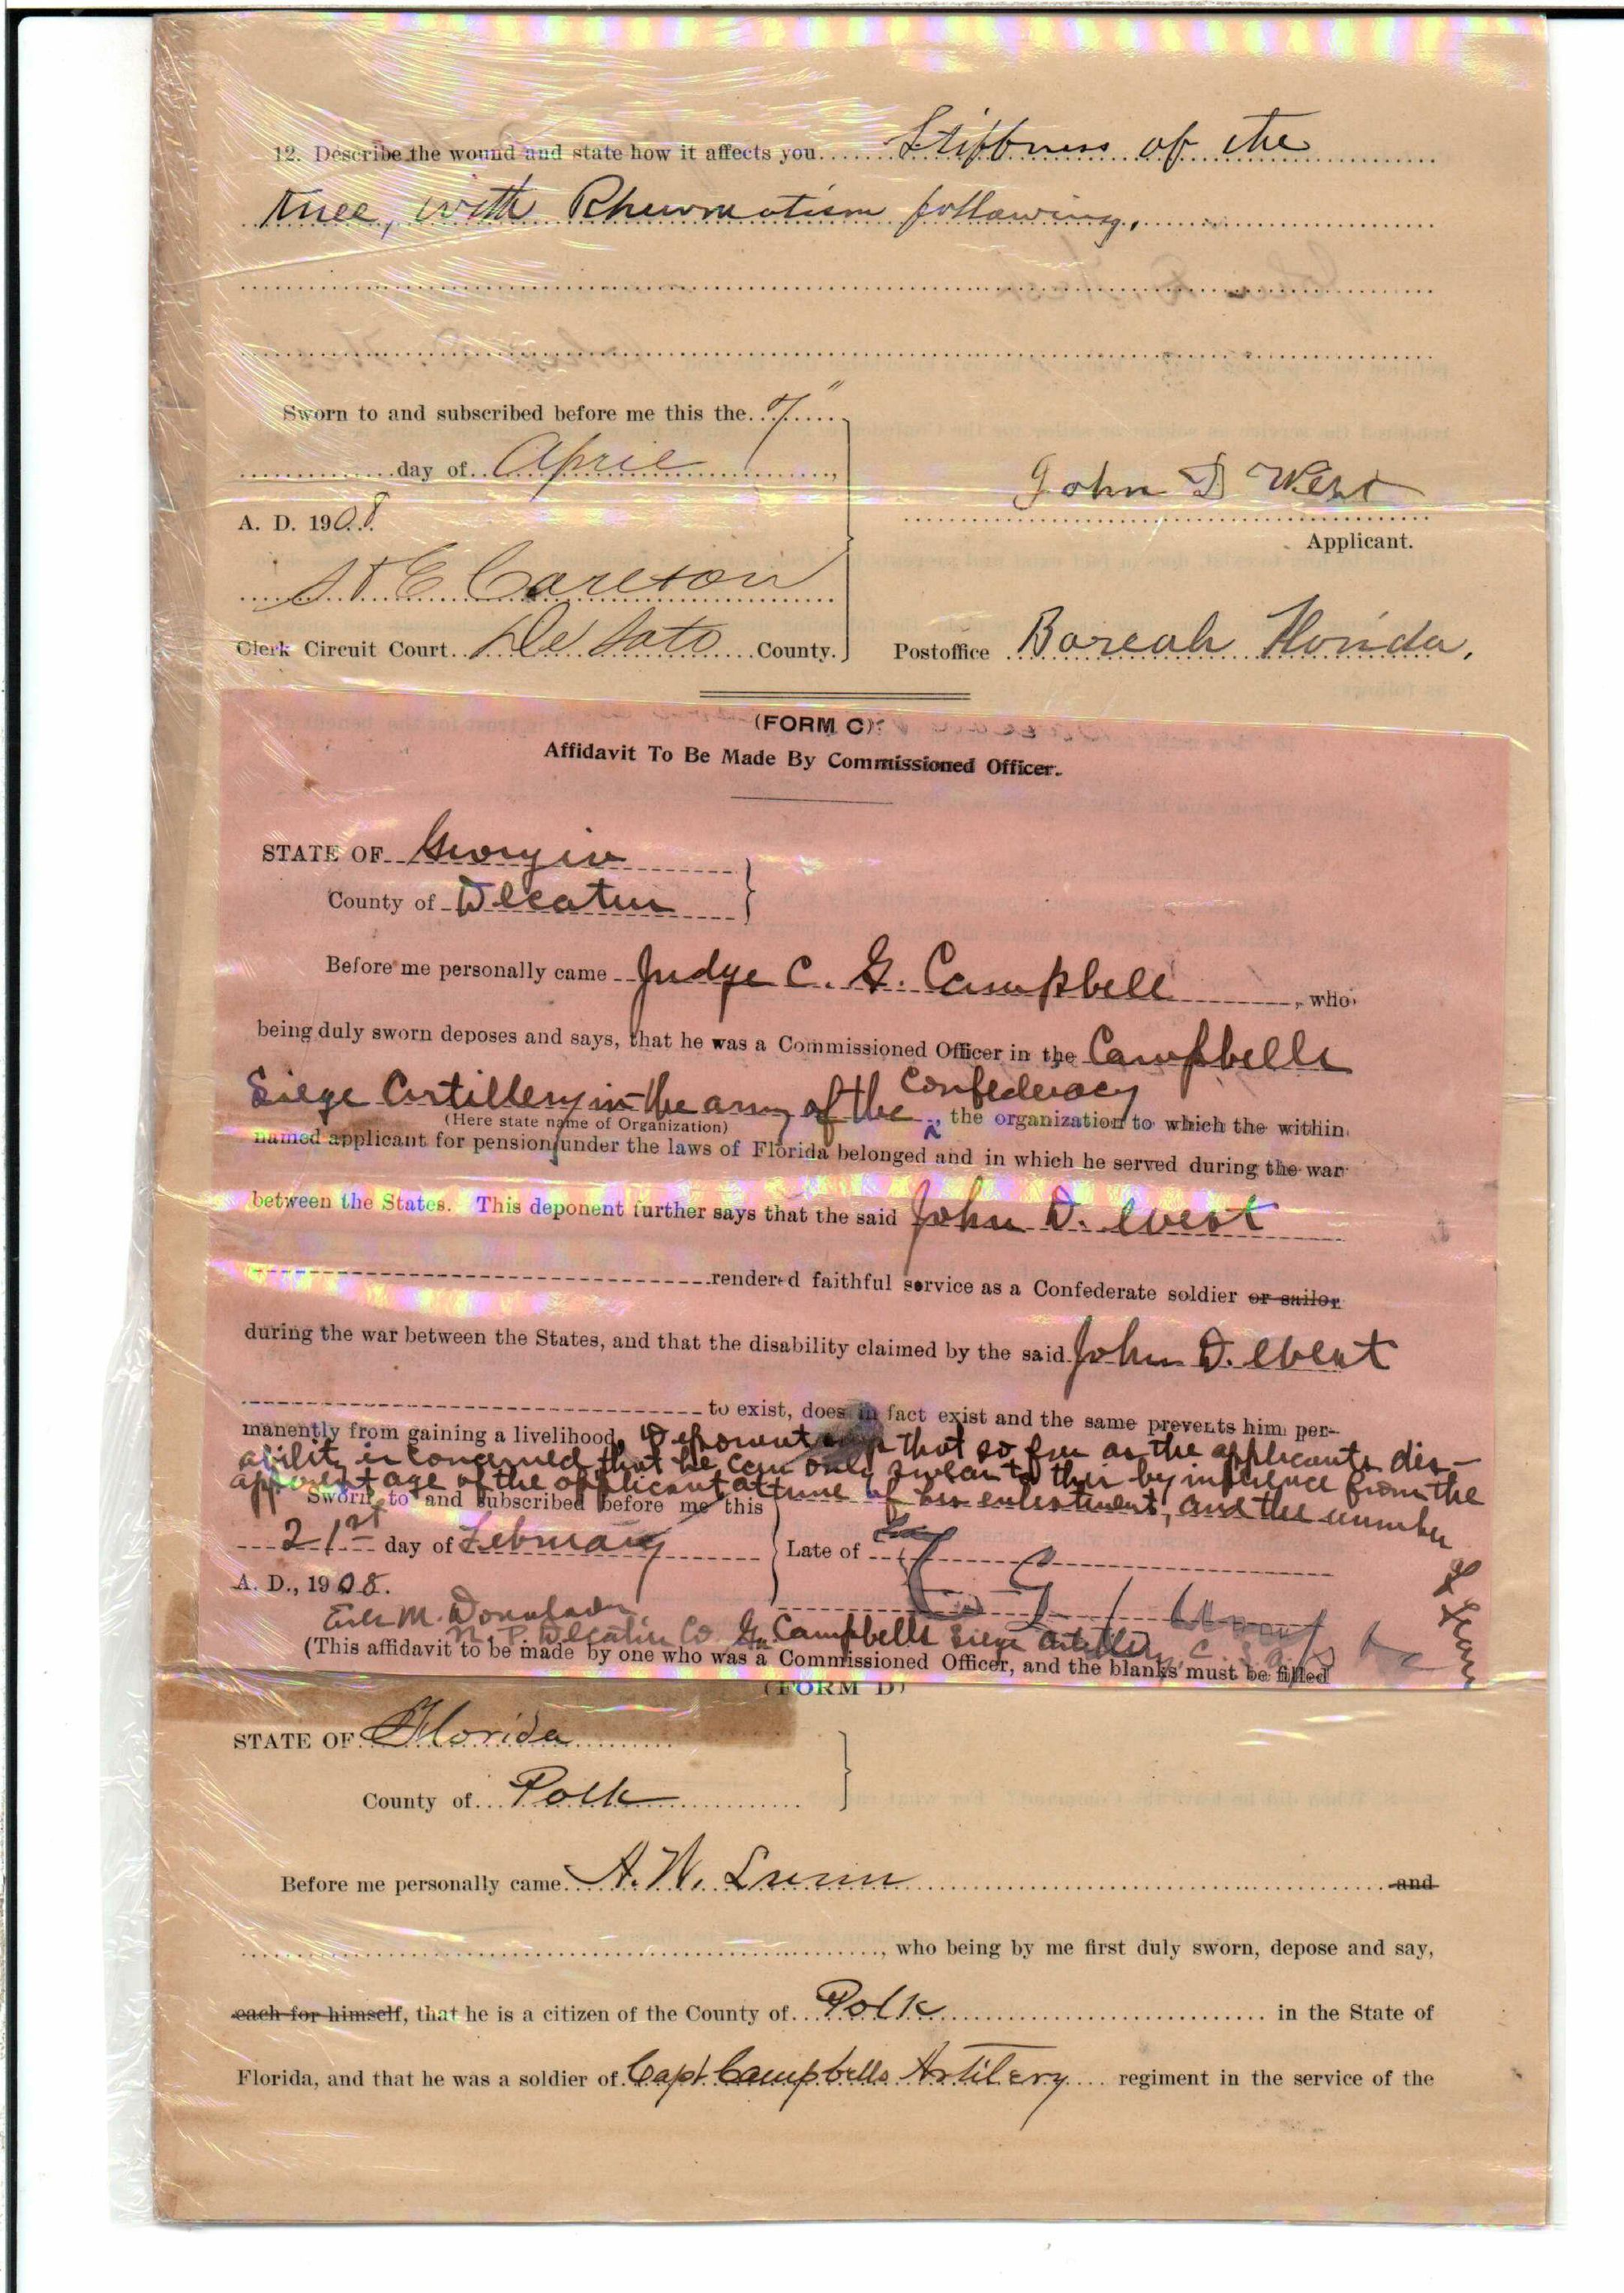 12. Describe the wound and state how it affects you Stiffness of the
Knee, with Rheumatism following.
Sworn to and subscribed before me this the 7"
day of April
A. D. 1908.
Carlton
Clerk Circuit Court De Soto County.
John D West
Applicant.
Postoffice Bareah Florida.
(FORM C)
Affidavit To Be Made By Commissioned Officer.
STATE OF Georgia
County of Decatur
Before me personally came Judge C. G. Campbell, who
being duly sworn deposes and says, that he was a Commissioned Officer in the Campbells
Siege Artillery in the army of the Confederacy, the organization to which the within
(Here state name of Organization)
named applicant for pension under the laws of Florida belonged and in which he served during the war
between the States. This deponent further says that the said John D. West
rendered faithful service as a Confederate soldier or sailor
during the war between the States, and that the disability claimed by the said John D. West
to exist, does in fact exist and the same prevents him per-
manently from gaining a livelihood. Deponent says that so far as the applicants dis-
ability is concerned that he can only swear to this by inference from the
apparent age of the applicant at time of his enlistment, and the number
of years
Sworn to and subscribed before me this
21st day of February
A. D., 1908.
Late of
M. Donalson
N. P. Decatur Co. Ga.
Campbells Siege Artillery C. S. A.
(This affidavit to be made by one who was a Commissioned Officer, and the blanks must be filled
(FORM D)
STATE OF Florida
County of Polk
Before me personally came A. W. Lunn and
, who being by me first duly sworn, depose and say,
each for himself, that he is a citizen of the County of Polk in the State of
Florida, and that he was a soldier of Capt Campbells Artilery regiment in the service of the